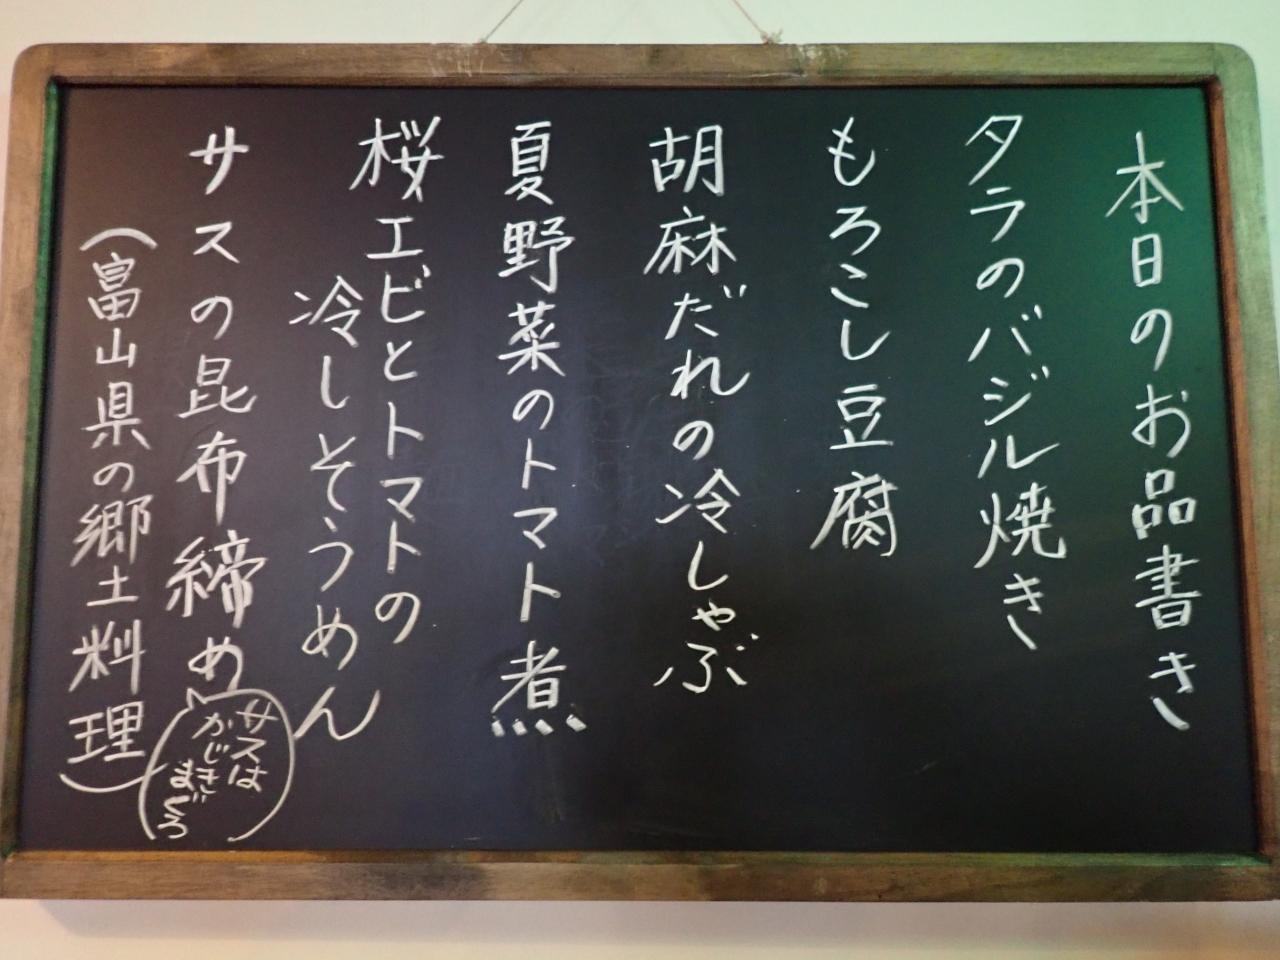 本日のお品書き
タラのバジル焼き
もろこし豆腐
胡麻だれの冷しゃぶ
夏野菜のトマト煮
桜エビとトマトの
冷しそうめん
サスの昆布締め
サスは
かじき
まぐろ
(富山県の郷土料理)